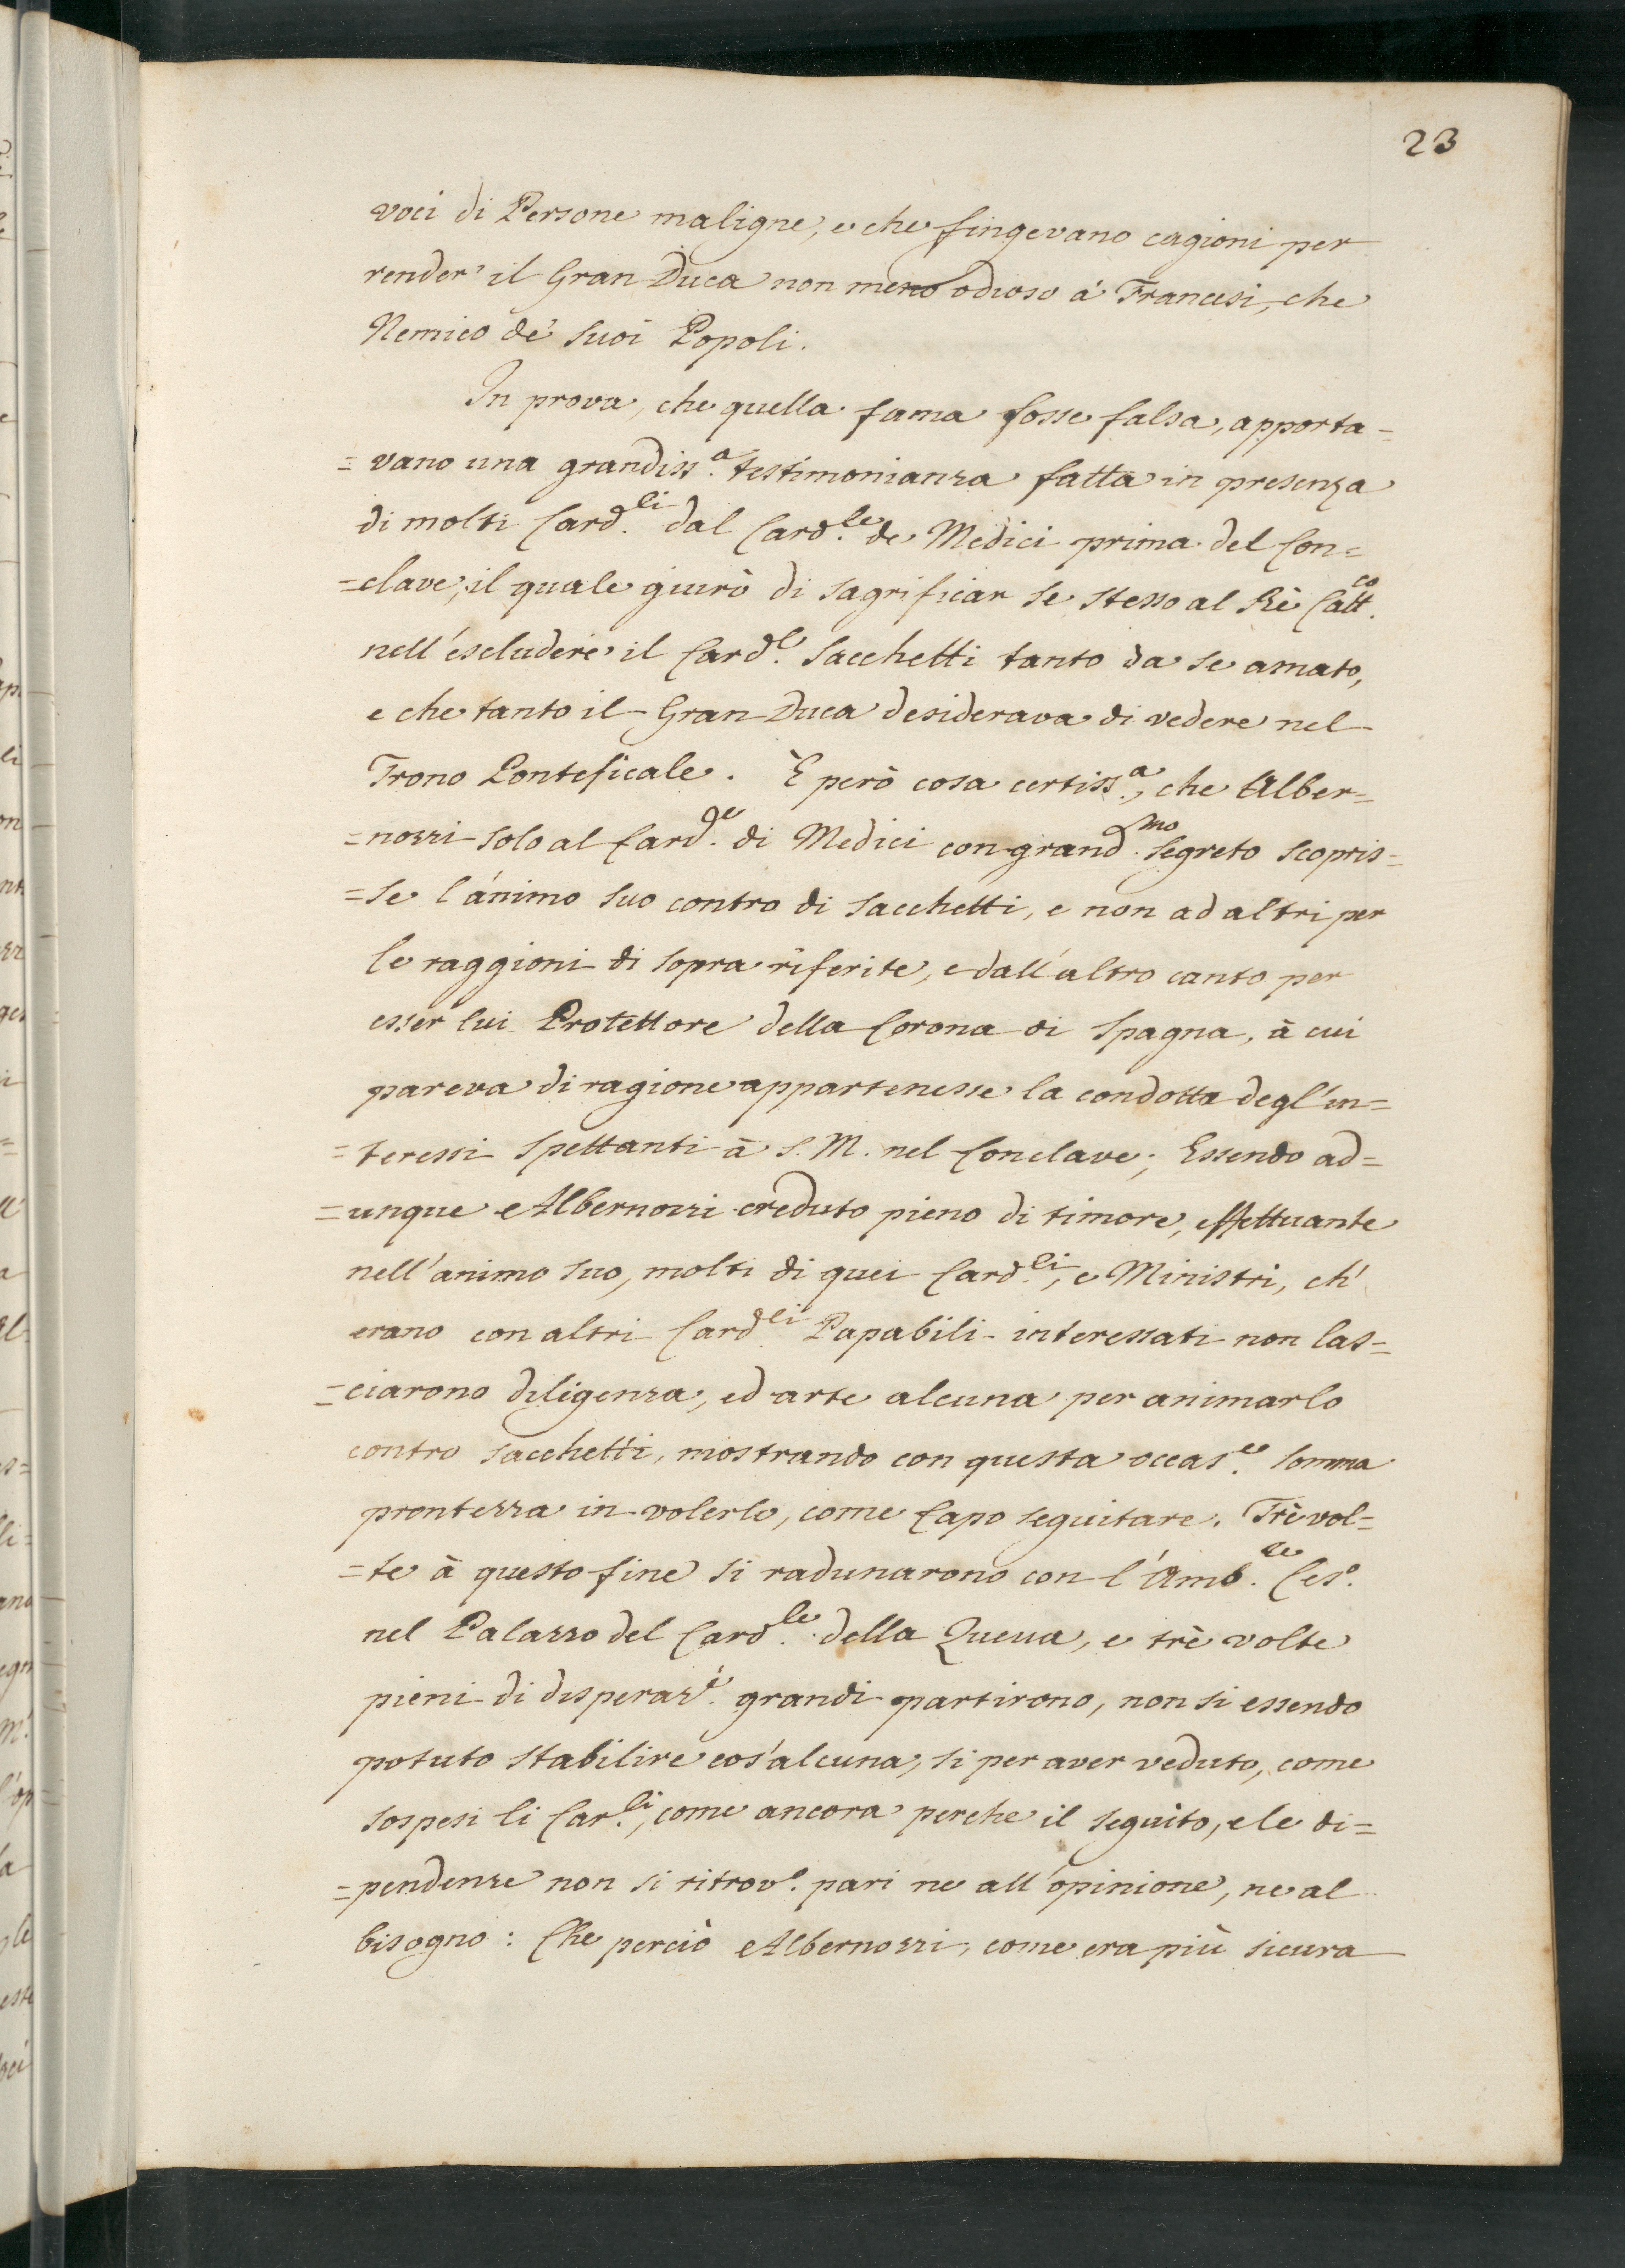 23
voci di Persone maligne, e che fingevano cagioni per
render' il Gran Duca non meno odioso à Francesi, che
Nemico de' suoi Popoli.
In prova, che quella fama fosse falsa, apporta=
=vano una grandiss.ª testimonianza fatta in presenza
di molti Card.li dal Card.le de Medici prima del Con=
=clave, il quale giurò di sagrificar se stesso al Rè Catt.co
nell'escludere il Card.le Sacchetti tanto da se amato,
e che tanto il Gran Duca desiderava di vedere nel
Trono Ponteficale. È però cosa certiss.ª, che Alber=
=nozzi solo al Card.le di Medici con grand.mo segreto scopris=
=se l'animo suo contro di Sacchetti, e non ad altri per
le raggioni di sopra riferite, e dall'altro canto per
esser lui Protettore della Corona di Spagna, à cui
pareva di ragione appartenesse la condotta degl'in=
=teressi spettanti à S. M. nel Conclave; Essendo ad=
=unque Albernozzi creduto pieno di timore, effettuante
nell'animo suo, molti di quei Card.li, e Ministri, ch'
erano con altri Card.li Papabili interessati non las=
=ciarono diligenza, ed arte alcuna per animarlo
contro Sacchetti, mostrando con questa occas.e somma
prontezza in volerlo, come Capo seguitare. Trè vol=
=te à questo fine si radunarono con l'Amb.re Ces.o
nel Palazzo del Card.le della Queua, e trè volte
pieni di disperaz.i grandi partirono, non si essendo
potuto stabilire cos'alcuna, si per aver veduto, come
sospesi li Car.li, come ancora perche il seguito, e le di=
=pendenze non si ritrov.o pari ne all'opinione, ne al
bisogno: Che perciò Albernozzi, come era più sicura